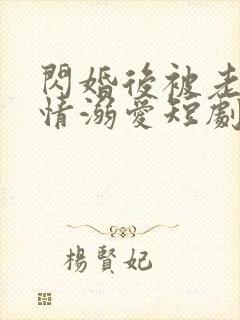 閃婚後被老
情溺愛短劇
楊賢妃